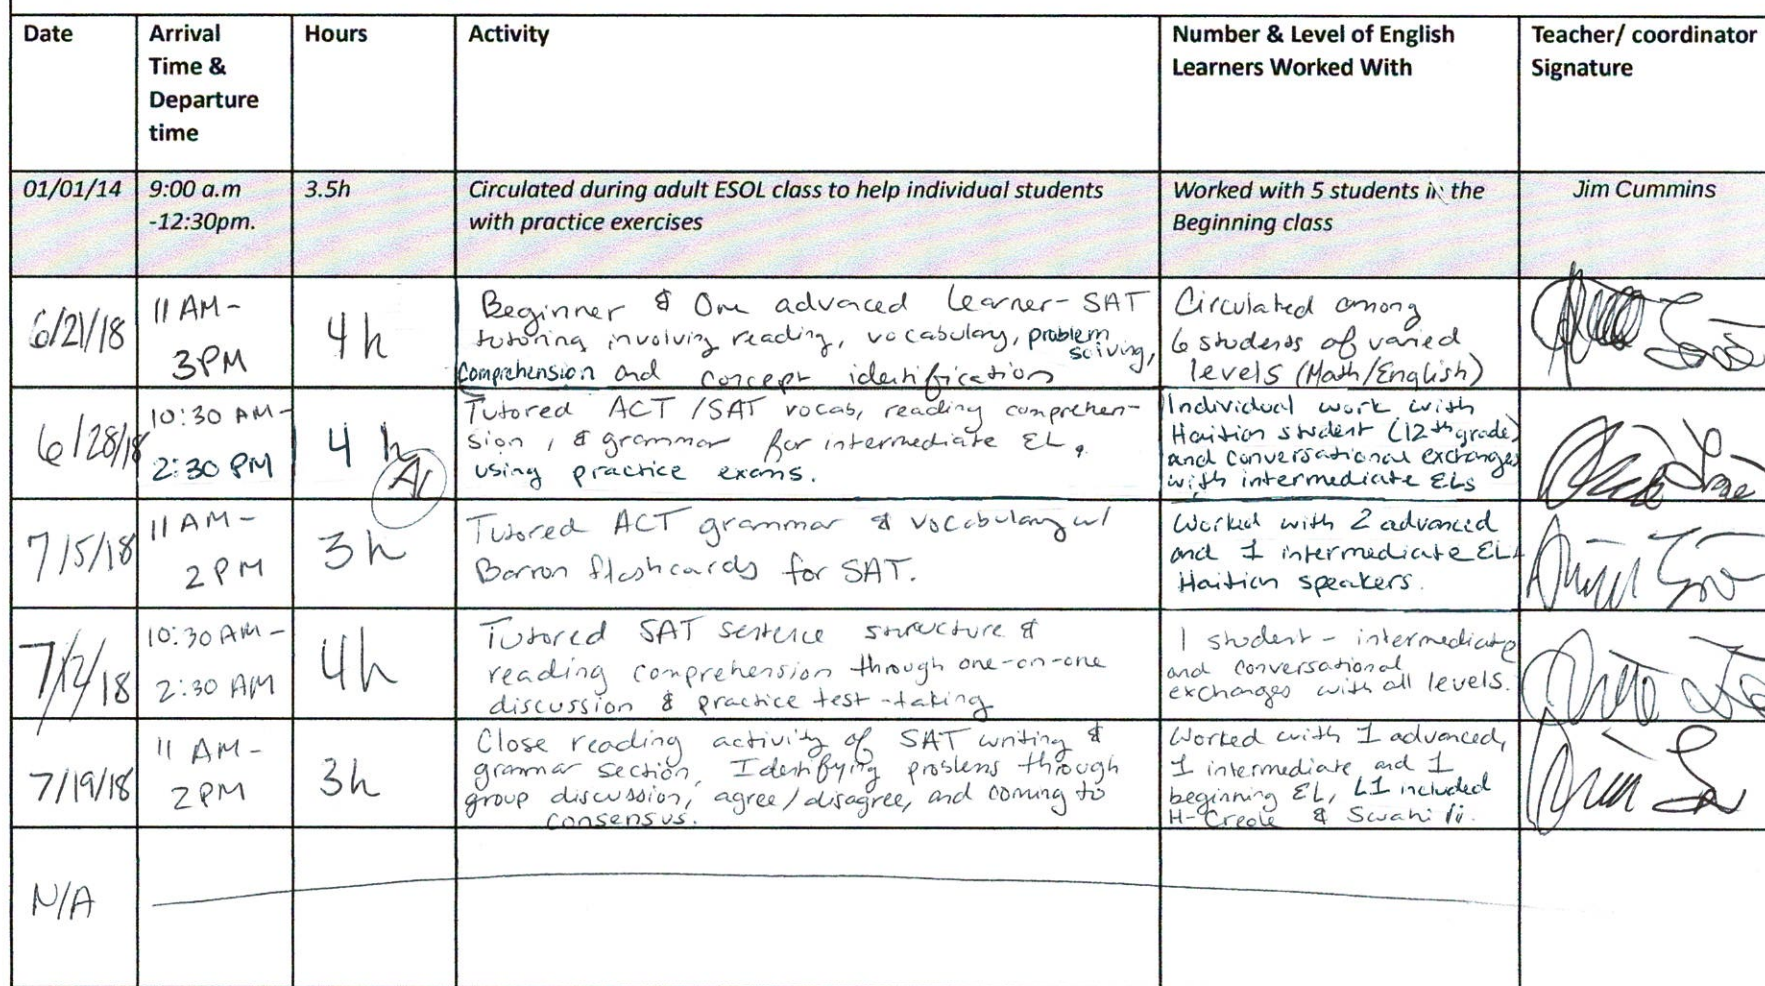 Date
Arrival
Time &
Departure
time
Hours
Activity
Number & Level of English
Learners Worked With
Teacher/ coordinator
Signature
01/01/14
9:00 a.m
-12:30pm.
3.5h
Circulated during adult ESOL class to help individual students
with practice exercises
Worked with 5 students in the
Beginning class
Jim Cummins
6/21/18
11 AM-
3PM
4h
Beginner & One advaced learner- SAT
tutoring involving reading, vocabulary, problem
solving,
comprehension and concept identification
Circulated among
6 students of varied
levels (Math/English)
6/28/18
10:30 AM-
2:30 PM
4 h
Tutored ACT /SAT vocab, reading comprehen-
sion, & grammar for intermediate EL,
using practice exams.
Individual work with
Haitian student (12th grade)
and conversational exchanges
with intermediate ELs
7/5/18
11 AM-
2 PM
3h
Tutored ACT grammar & vocabulary w/
Barron flashcards for SAT.
Worked with 2 advanced
and 1 intermediate EL,
Haitian speakers.
7/12/18
10:30 AM-
2:30 AM
4h
Tutored SAT sentence structure &
reading comprehension through one-on-one
discussion & practice test-taking
1 student - intermediate
and conversational
exchanges with all levels.
7/19/18
11 AM-
2PM
3h
Close reading activity of SAT writing &
grammar section, Identifying problems through
group discussion, agree/disagree, and coming to
consensus.
Worked with 1 advanced,
1 intermediate and 1
beginning EL, L1 included
H-Creole & Swahili.
N/A